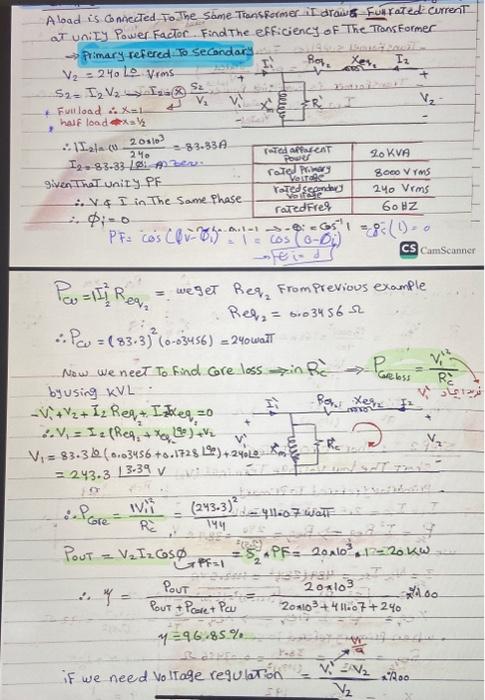 A load is Connected To The Same Transformer iT draws Full rated current
at uniTy Power Factor Find The efficiency of The Transformer
→ Primary refered To Secondary
V₂ = 240∠0 Vrms
I₁' Req₂ Xeq₂ I₂
S₂ = I₂V₂ → I₂ = (x) S₂/V₂
V₁' Xm' Rc' V₂
* Full load ∴ x=1
* half load x=½
∴ |I₂| = (1) 20x10³/240 = 83.33A
I₂ = 83.33∠Øi
given That uniTy PF
∴ V & I in The Same Phase
∴ Øi = 0
PF = cos(Øv-Øi) = 1 = cos(0-Øi) → -Øi = cos⁻¹ 1 = cos⁻¹(1) = 0
rated apparent Power 20 KVA
rated Primary Voltage 8000 Vrms
rated secondary voltage 240 Vrms
rated Freq 60 HZ
CS CamScanner
Pcu = |I|₂² Req₂ = we get Req₂ From Previous example
Req₂ = 0.03456 Ω
∴ Pcu = (83.3)² (0.03456) = 240 watt
Now we neeT To find Core loss → in Rc' → Pcoreloss = V₁'²/Rc'
by using KVL
-V₁' + V₂ + I₂ Req₂ + I₂ Xeq₂ = 0
I₁' Req₂ Xeq₂ I₂
∴ V₁ = I₂ (Req₂ + Xeq₂∠90) + V₂
V₁' Xm' Rc' V₂
V₁ = 83.3∠0 (0.03456 + 0.1728∠90) + 240∠0
= 243.3∠3.39 V
∴ Pcore = |V₁|'²/Rc' = (243.3)²/144 = 411.07 watt
POUT = V₂I₂cosØ = S₂ * PF = 20x10³ * 1 = 20 KW
PF=1
∴ η = POUT / POUT + Pcore + Pcu = 20x10³ / 20x10³ + 411.07 + 240 x 100
η = 96.85%
if we need Voltage regulation = V₁' - V₂ / V₂ x 100
V₁/a